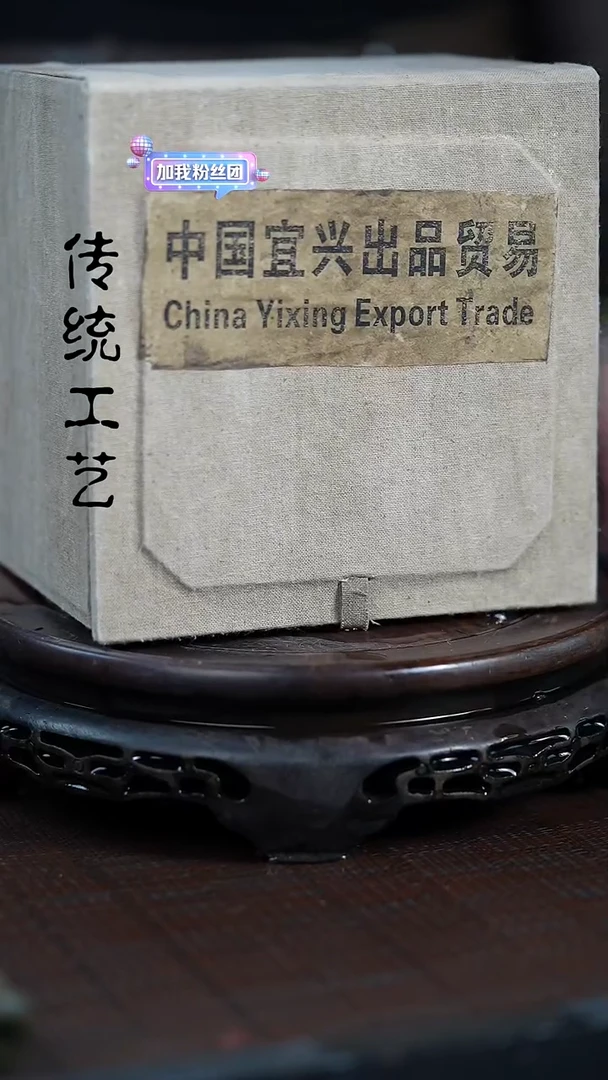 加我粉丝团
中国宜兴出品贸易
China Yixing Export Trade
传统工艺